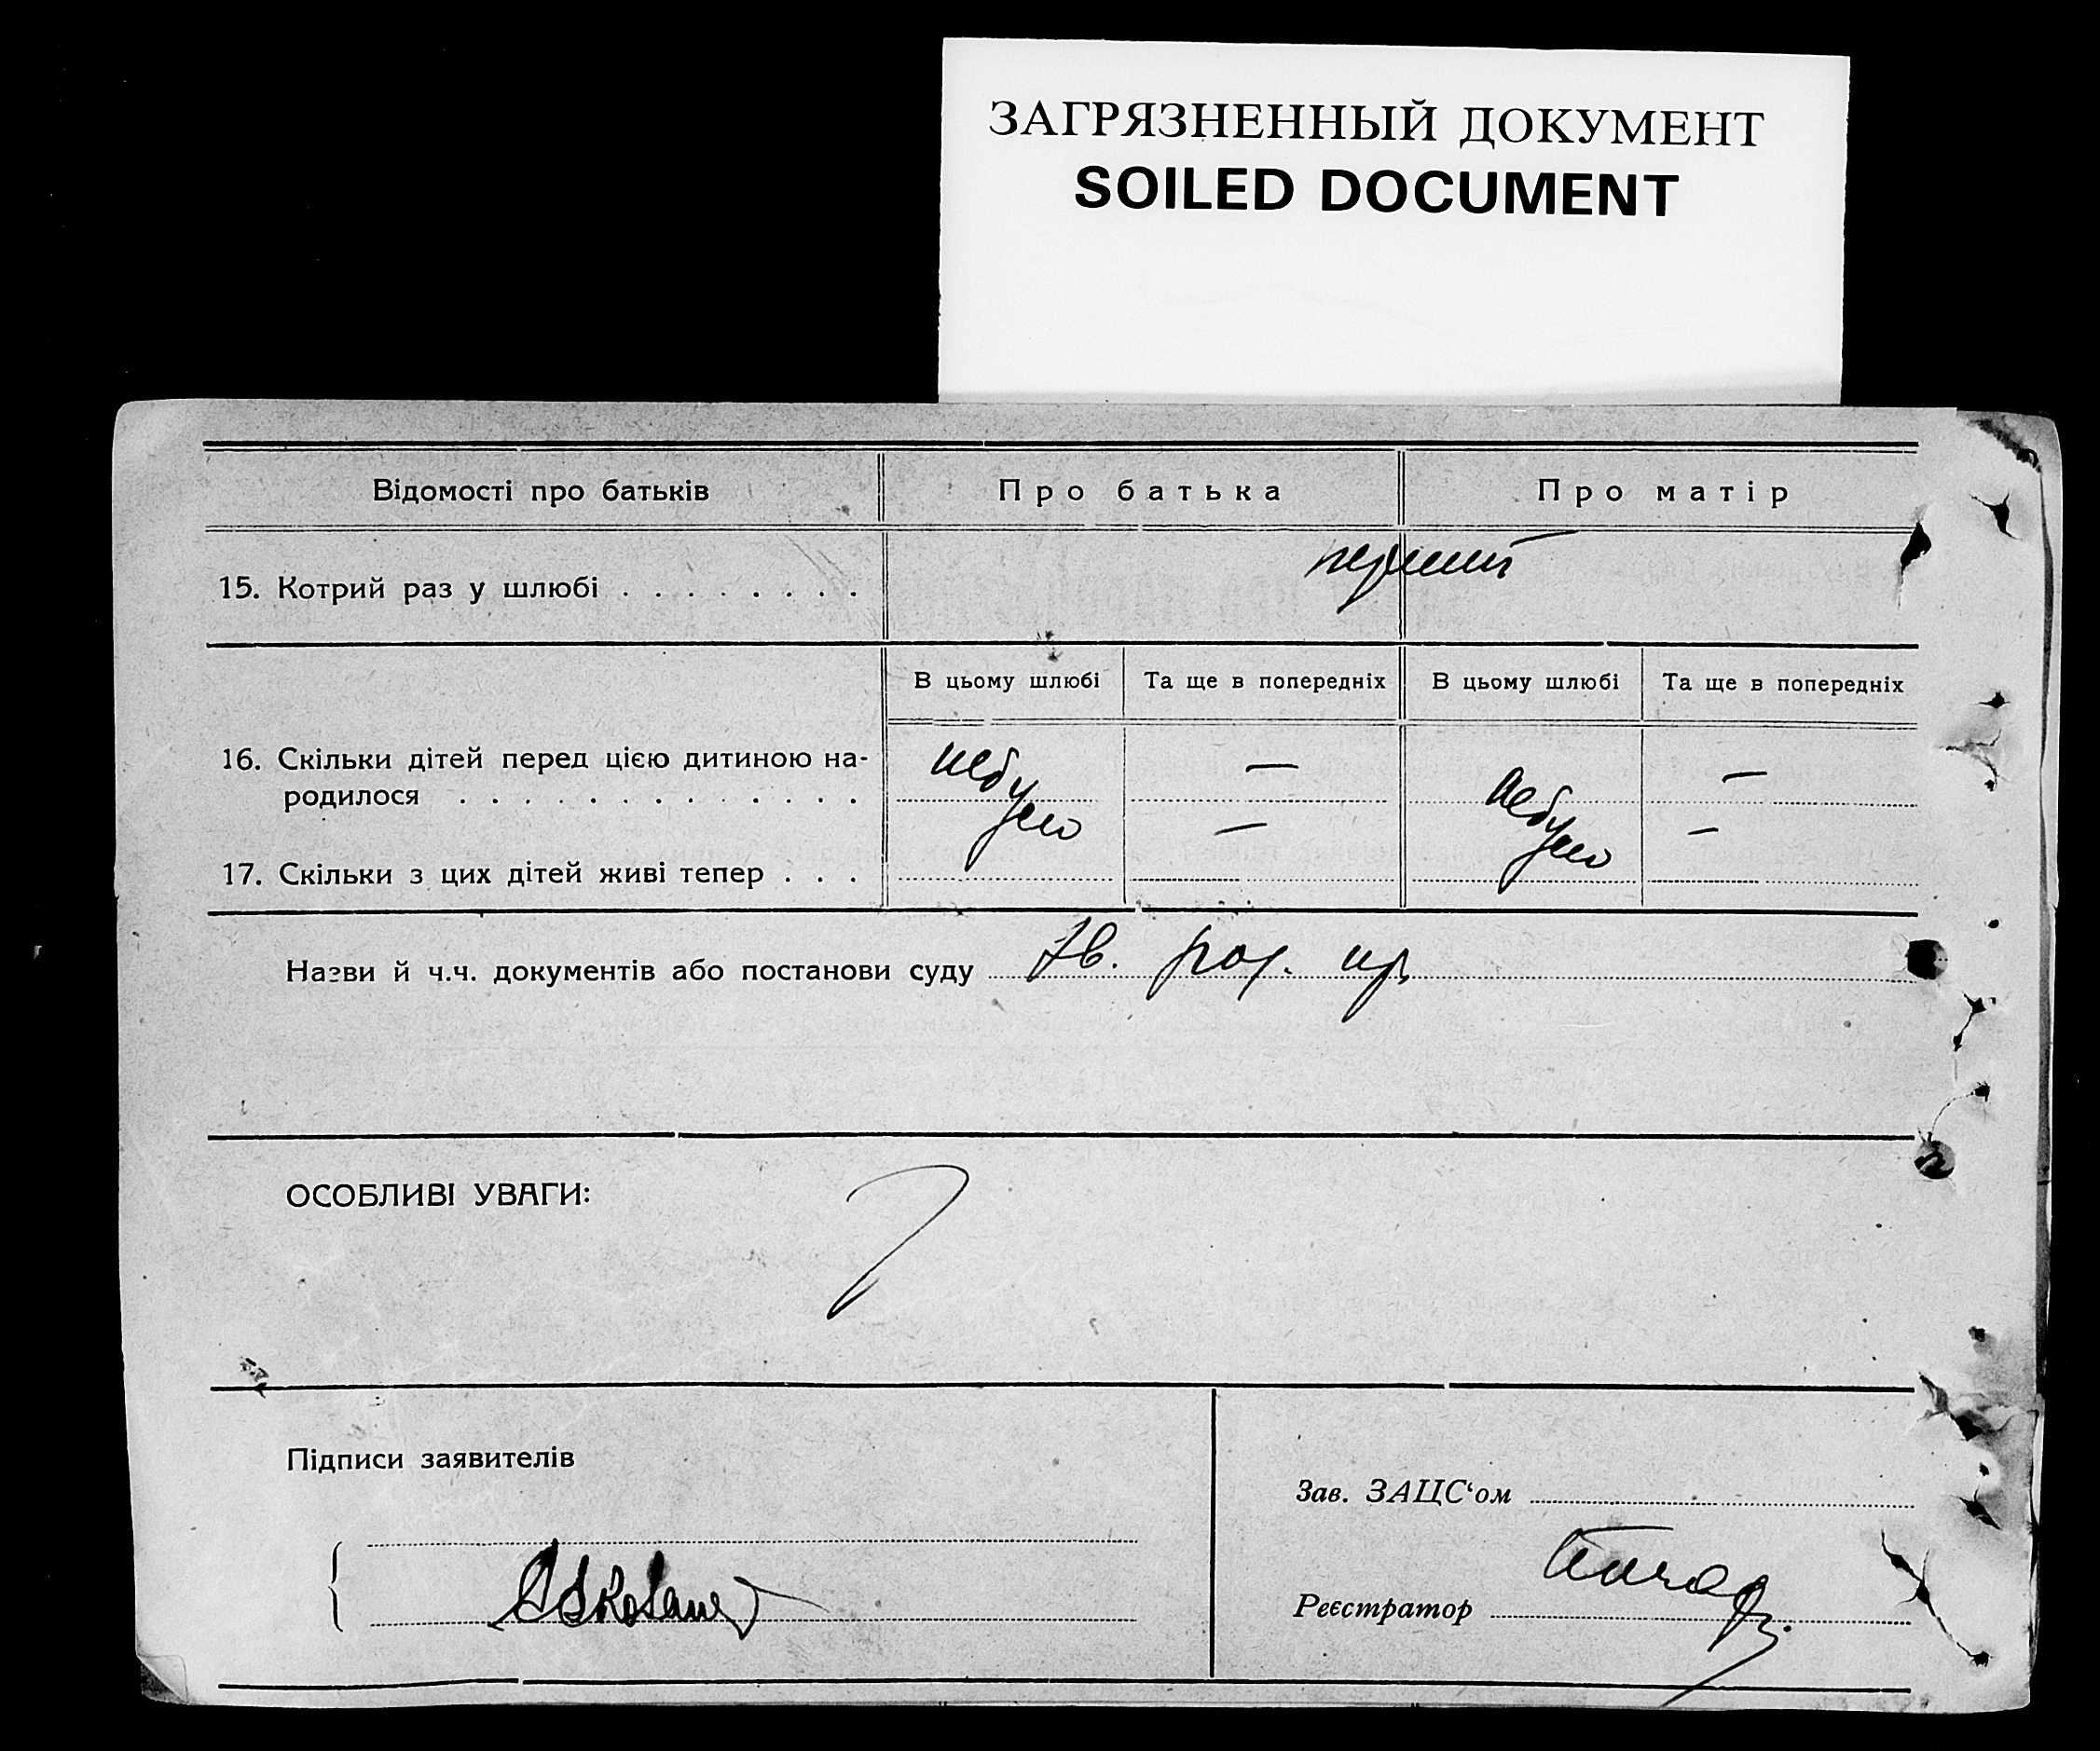 ЗАГРЯЗНЕННЫЙ ДОКУМЕНТ
SOILED DOCUMENT
Відомості про батьків Про батька Про матір
15. Котрий раз у шлюбі . . . . . . . . перший
В цьому шлюбі Та ще в попередніх В цьому шлюбі Та ще в попередніх
16. Скільки дітей перед цією дитиною на-
родилося . . . . . . . . . . . . . небуло — небуло —
17. Скільки з цих дітей живі тепер . . . — —
Назви й ч.ч. документів або постанови суду
ОСОБЛИВІ УВАГИ:
Підписи заявителів
Зав. ЗАЦС‘ом
Реєстратор